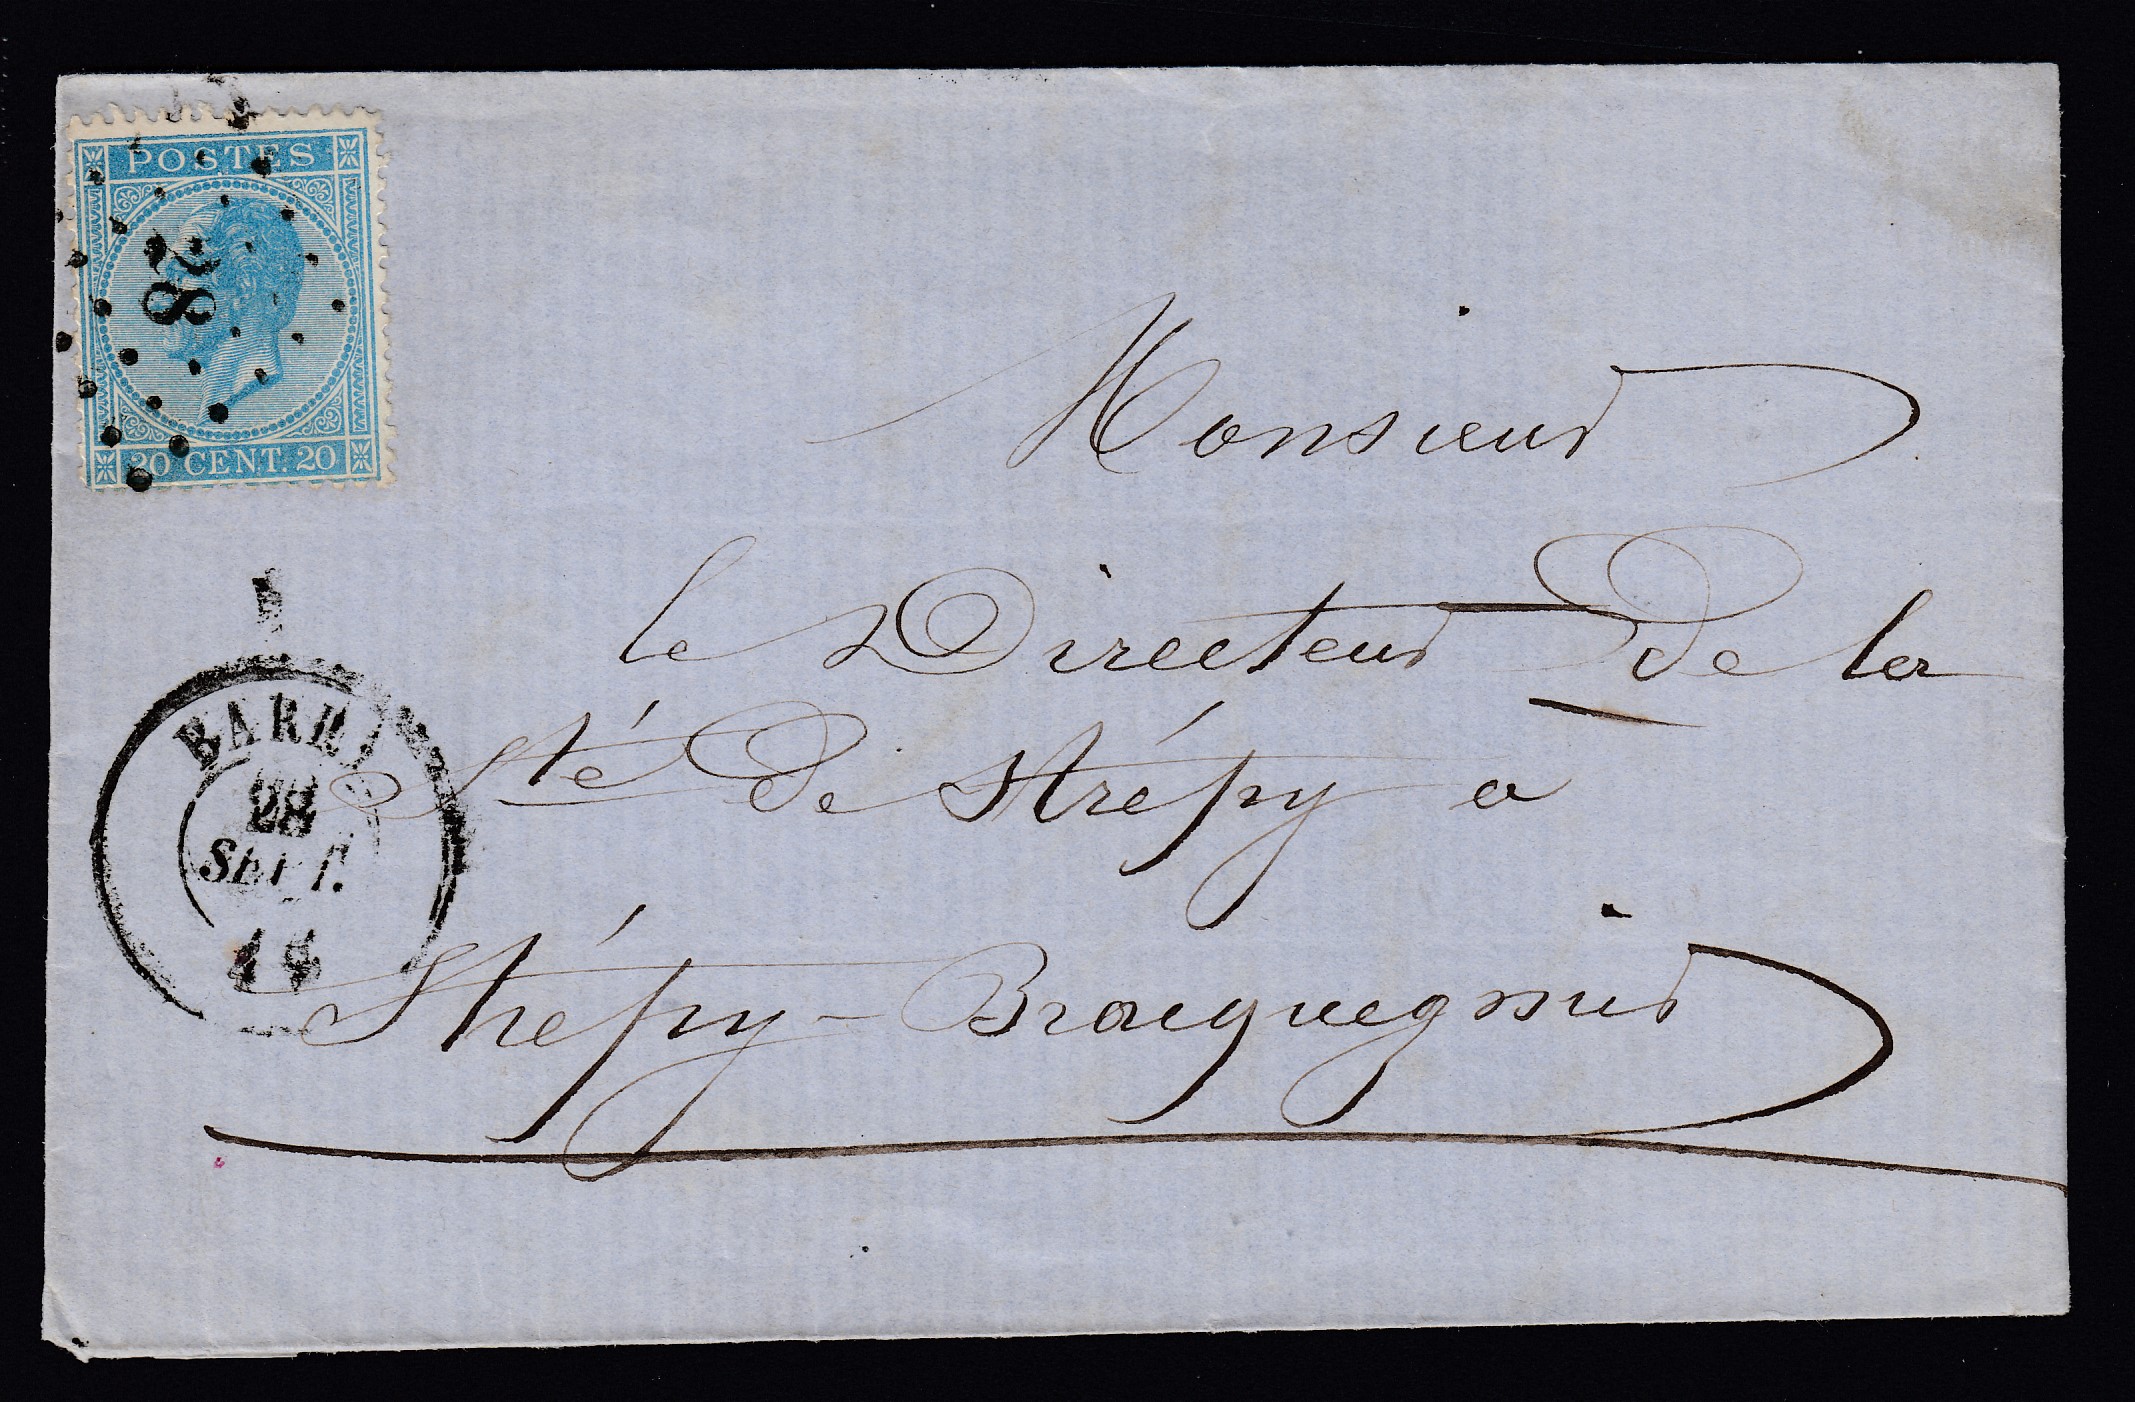 POSTES
28
20 CENT. 20
Monsieur
le Directeur de la
Sté de Strépy a
Strépy-Bracquegnies
28
SEPT.